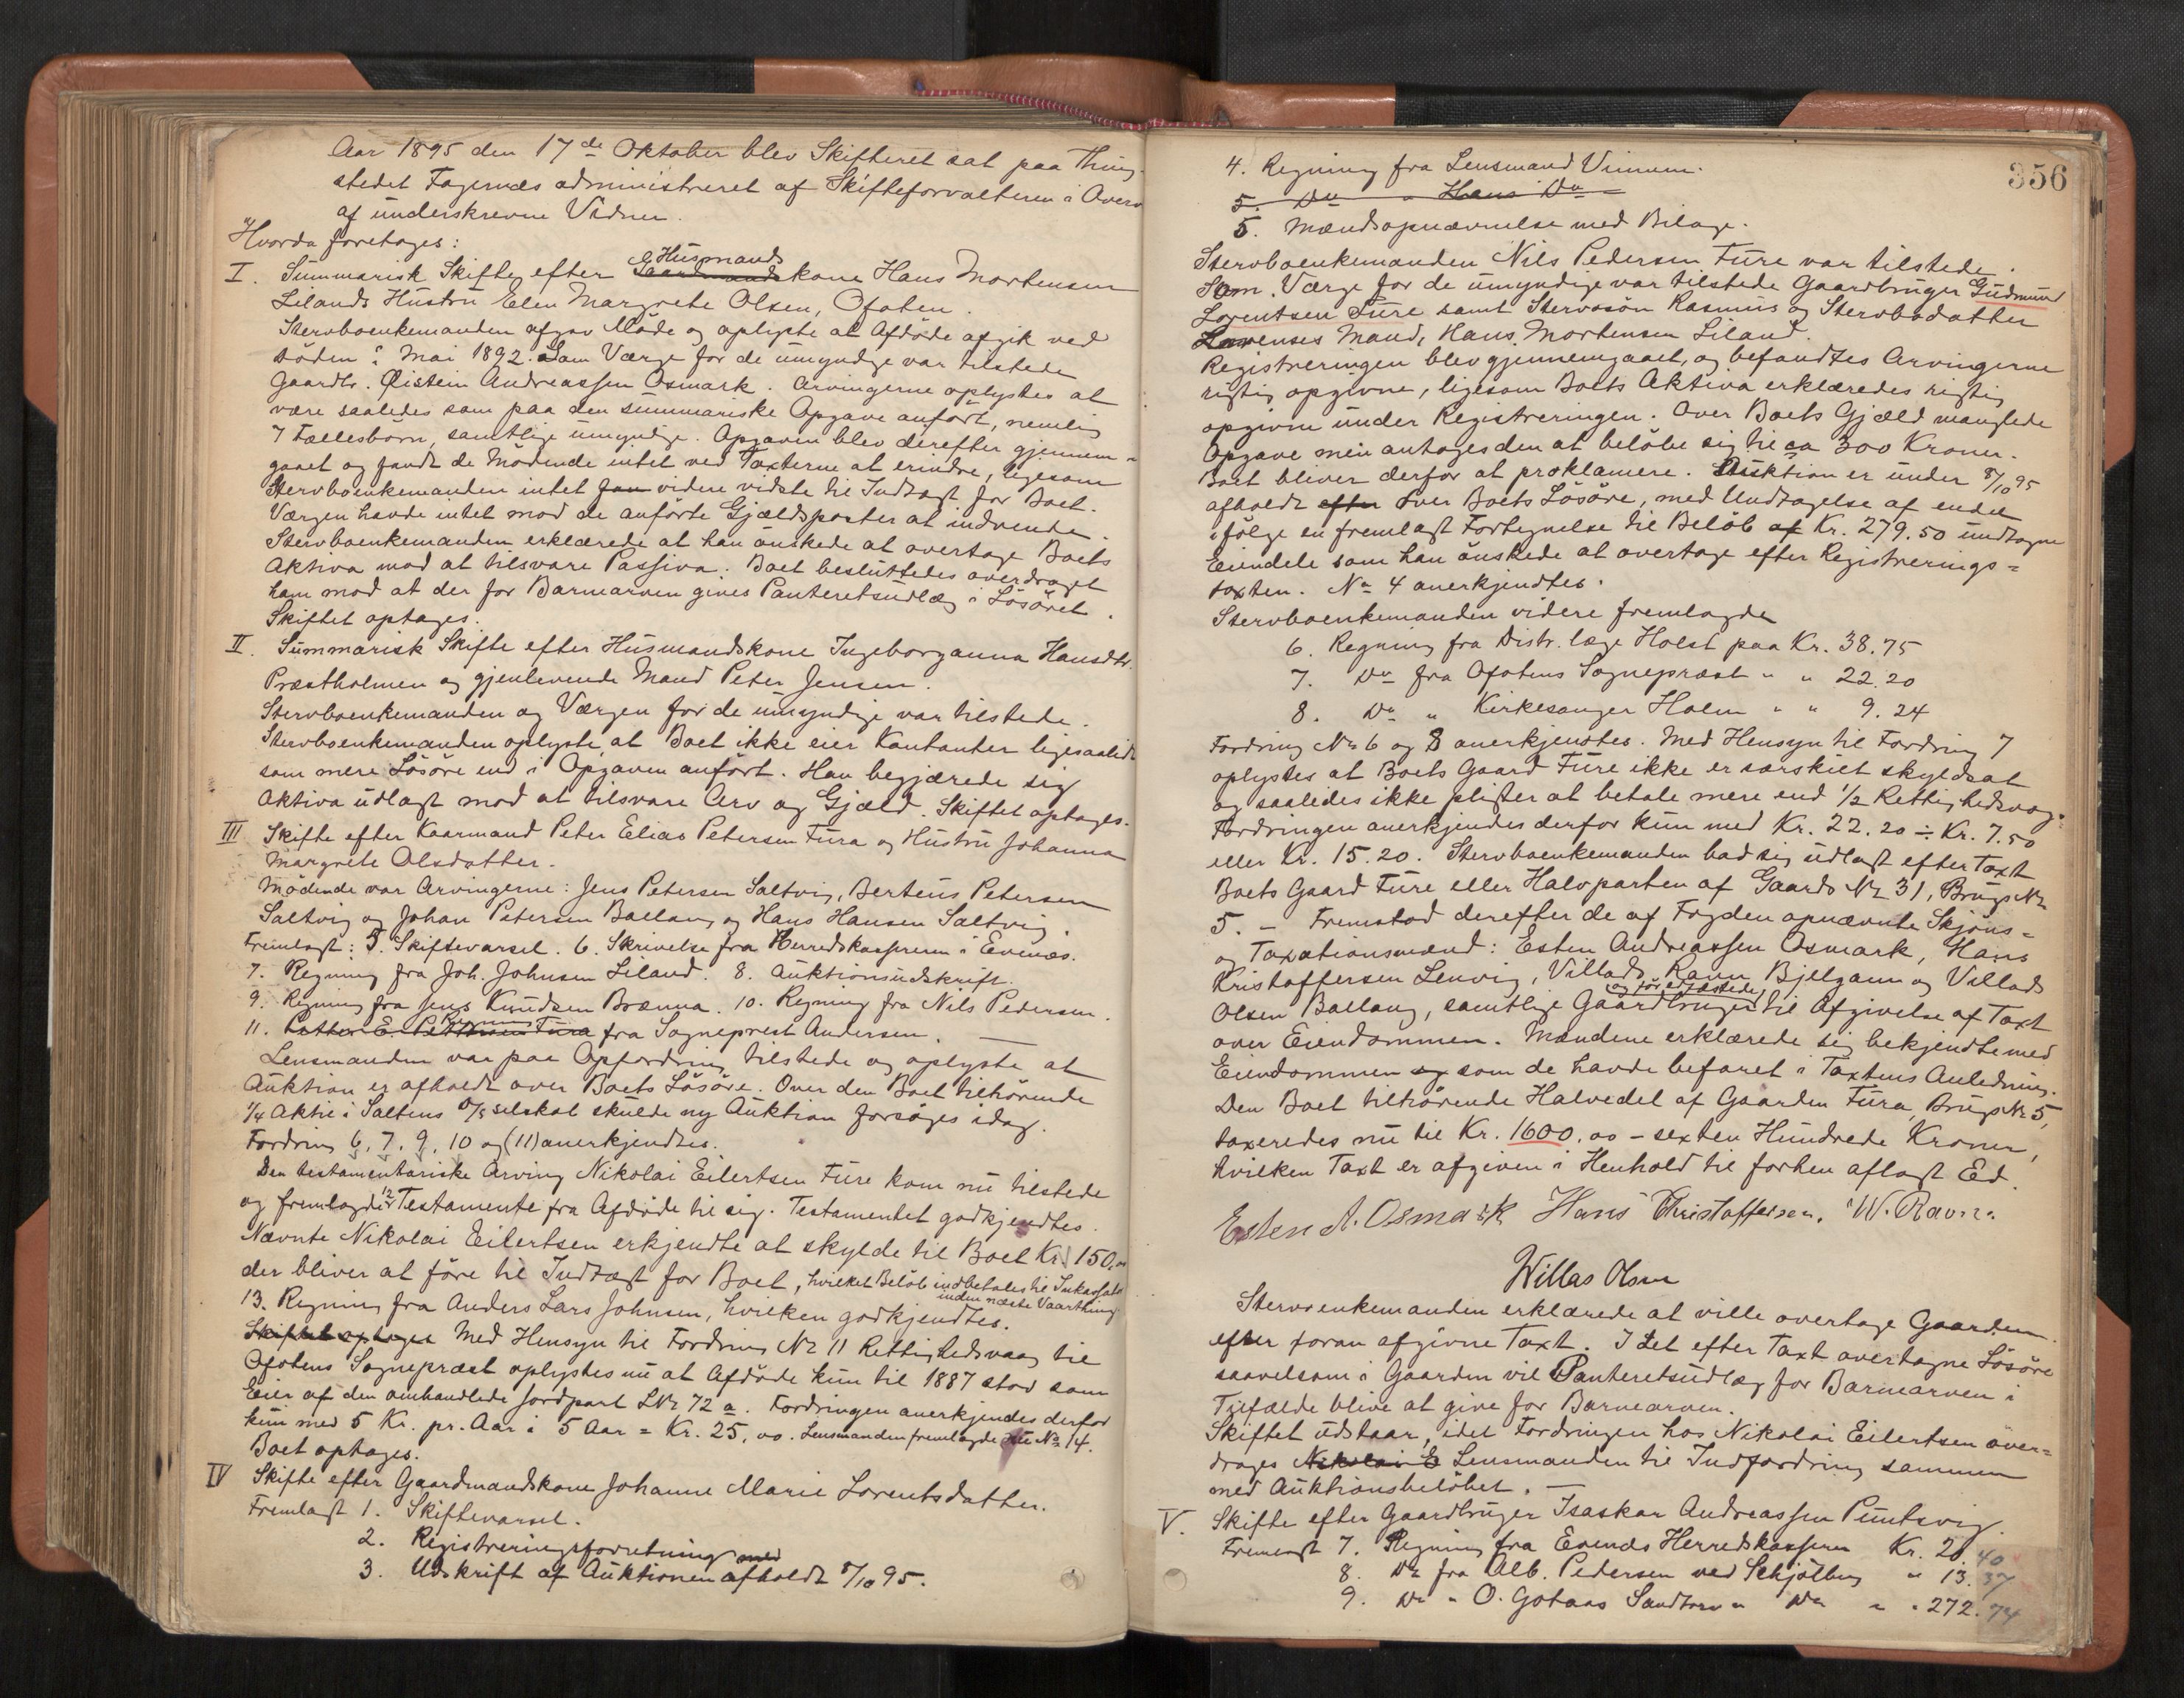 Aar 1895 den 17de Oktober blev Skifteret sat paa Thing-
stedet Fagernæs administreret af Skifteforvalteren i Overv
af underskrevne Vidner.
Hvorda foretages:
I. Summarisk Skifte efter Gaardmands Husmands kone Hans Mortensen
Lilands Hustru Elen Margrete Olsen, Ofoten.
Stervboenkemanden afgav Møde og oplyste at Afdøde afgik ved
døden i Mai 1892. Som Værge for de umyndige var tilstede
Gaardbr. Øistein Andreassen Osmark. Arvingerne oplystes at
være saaledes som paa den summariske Opgave anført, nemlig
7 Fællesbørn, samtlige umyndige. Opgaven blev derefter gjennem-
gaaet og fandt de Mødende intet ved Taxterne at erindre, ligesom
Stervboenkemanden intet videre vidste til Indtægt for Boet.
Værgen havde intet mod de anførte Gjældsposter at indvende.
Stervboenkemanden erklærede at han ønskede at overtage Boets
Aktiva mod at tilsvare Passiva. Boet besluttedes overdraget
ham mod at der for Barnearven gives Panteretsudlæg i Løsøret.
Skiftet optages.
II. Summarisk Skifte efter Husmandskone Ingeborganna Hansdtr.
Præstholmen og gjenlevende Mand Peter Jensen.
Stervboenkemanden og Værgen for de umyndige var tilstede.
Stervboenkemanden oplyste, at Boet ikke eier Kontanter ligesaalidt
som mere Løsøre end i Opgaven anført. Han begjærede sig
Aktiva udlagt mod at tilsvare Arv og Gjæld. Skiftet optages.
III Skifte efter Kaarmand Peter Elias Petersen Fura og Hustru Johanna
Margrete Olsdatter.
Mødende var Arvingerne: Jens Petersen Saltvig, Berteus Petersen
Saltvig og Johan Petersen Ballang og Hans Hansen Saltvig.
Fremlagt: 5. Skiftevarsel. 6. Skrivelse fra Herredskasseren i Evenæs.
7. Regning fra Joh. Johnsen Liland. 8. Auktionsudskrift.
9. Regning fra Jens Knudsen Brænna. 10. Regning fra Nils Pedersen.
11. Petter E. Pettersen Fura Regning fra Sogneprest Andersen.
Lensmanden var paa Opfordring tilstede og oplyste at
Auktion er afholdt over Boets Løsøre. Over den Boet tilhørende
1/4 Aktie i Saltens D/sselskab skulde ny Auktion forsøges idag.
Fordring 6, 7, 9, 10 og (11) anerkjendtes.
Den testamentariske Arving Nikolai Eilertsen Fure kom nu tilstede
og fremlagde 12 Testamente fra Afdøde til sig. Testamentet godkjendtes.
Nævnte Nikolai Eilertsen erkjendte at skylde til Boet Kr. 150,00
der bliver at føre til Indtægt for Boet, hvilket Beløb indbetales til Inkassator
inden næste Vaarthing
13. Regning fra Anders Lars Johnsen, hvilken godkjendtes.
Skiftet optages Med Hensyn til Fordring No 11 Rettighedsvaag til
Ofotens Sognepræst oplystes nu at Afdøde kun til 1887 stod som
Eier af den omhandlede Jordpart LNr 72 a. Fordringen anerkjendes derfor
kun med 5 Kr. pr. Aar i 5 Aar = Kr. 25,00. Lensmanden fremlagde No 14.
Boet optages.
IV Skifte efter Gaardmandskone Johanne Marie Lorentsdatter.
Fremlagt 1. Skiftevarsel.
2. Registreringsforretning med
3. Udskrift af Auktionen afholdt 8/10 95.
356
4. Regning fra Lensmand Vinum.
5. Do " Hans Do
5. Mændsopnævnelse med Bilage.
Stervboenkemanden Nils Pedersen Fure var tilstede.
Som Værge for de umyndige var tilstede Gaardbruger Gudmund
Lorentsen Fure samt Stervosøn Rasmus og Stervbodatter
Lorenses Mand, Hans Mortensen Liland.
Registreringen blev gjennemgaaet, og befandtes Arvingerne
rigtig opgivne, ligesom Boets Aktiva erklæredes rigtig
opgivne under Registreringen. Over Boets Gjæld manglede
Opgave men antages den at beløbe sig til ca 300 Kroner.
Boet bliver derfor at proklamere. Auktion er under 8/10 95
afholdt efter over Boets Løsøre, med Undtagelse af endel
ifølge en fremlagt Fortegnelse til Beløb af Kr. 279.50 undtagne
Eiendele som han ønskede at overtage efter Registrerings=
taxten. No 4 anerkjendtes.
Stervboenkemanden videre fremlagde
6. Regning fra Distr. læge Holst paa Kr. 38.75
7. Do fra Ofotens Sognepræst " " 22.20
8. Do " Kirkesanger Holm " " 9.24
Fordring No 6 og 8 anerkjendtes. Med Hensyn til Fordring 7
oplystes at Boets Gaard Fure ikke er særskilt skyldsat
og saaledes ikke pligter at betale mere end 1/2 Rettighedsvog.
Fordringen anerkjendes derfor kun med Kr. 22.20 ÷ Kr. 7.50
eller Kr. 15.20. Stervboenkemanden bad sig udlagt efter Taxt
Boets Gaard Fure eller Halvparten af Gaards No 31, Brugs No
5. – Fremstod derefter de af Fogden opnævnte Skjøns=
og Taxationsmænd: Esten Andreassen Osmark, Hans
Kristoffersen Lenvig, Villads Ravn Bjelgam og Villads
Olsen Ballang, samtlige Gaardbruger til Afgivelse af Taxt
over Eiendommen. Mændene erklærede sig bekjendte med
Eiendommen og som de havde befaret i Taxtens Anledning.
Den Boet tilhørende Halvedel af Gaarden Fura, Brugs No 5,
taxeredes nu til Kr. 1600,00 – sexten Hundrede Kroner,
hvilken Taxt er afgiven i Henhold til forhen aflagt Ed.
Esten A. Osmark Hans Christoffersen. W. Ravn.
Willas Olsen
Stervoenkemanden erklærede at ville overtage Gaarden
efter foran afgivne Taxt. I det efter Taxt overtagne Løsøre
saavelsom i Gaarden vil Panteretsudlæg for Barnearven i
Tilfælde blive at give for Barnearven.
Skiftet udstaar, idet Fordringen hos Nikolai Eilertsen over=
drages Nikolai E Lensmanden til Indfordring sammen
med Auktionsbeløbet. –
V. Skifte efter Gaardbruger Isaskar Andreassen Puntsvig.
Fremlagt 7. Regning fra Evenæs Herredskasseren Kr. 20.40
8. Do fra Alb. Pedersen ved Schjølberg " 13.37
9. Do " O. Gotaas Sandtorv " Do " " 272.74